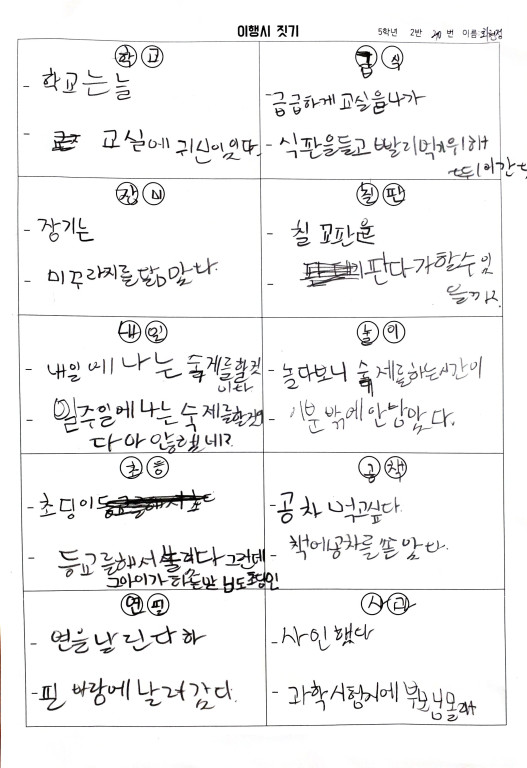 이행시 짓기
5학년 2반 20번 이름
학교
- 학교는 늘
- 교실에 귀신이 있다.
급식
- 급급하게 교실을 나가
- 식판을 들고 빨리 먹기 위해
뛰어간다
장미
- 장기는
- 미꾸라지를 닮았다.
칠판
- 칠교판은
- 판다가 할수 있
을까?
내일
- 내일에 나는 숙제를 할것
이다
- 일주일에 나는 숙제를
다
놀이
- 놀다보니 숙제를 하는 시간이
- 이분 밖에 안 남았다.
초등
- 초딩이
- 등교를 해서 그런데
그 아이가
공책
- 공차 먹고싶다.
- 책에 공차를 쏟았다.
연필
- 연을 날린다 하
- 필 바람에 날려 갔다.
사과
- 사인했다
- 과학 시험지에 부모님 몰래